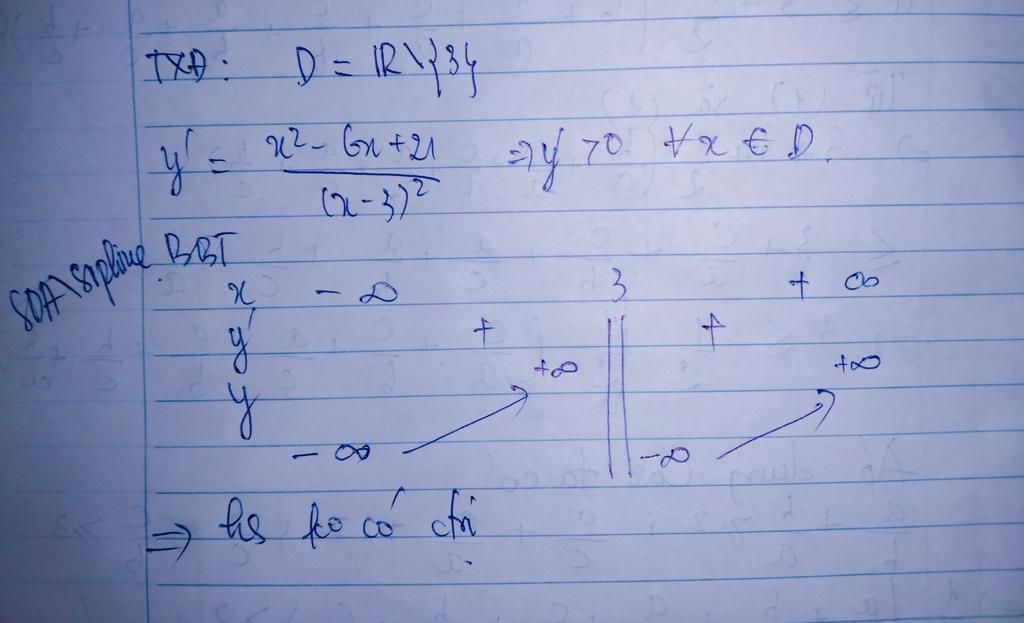 TXĐ: D = ℝ\{3}
y' = (x² - 6x + 21)/(x - 3)² ⇒ y' > 0 ∀x ∈ D.
BBT
x -∞ 3 +∞
y' + || +
y -∞ ↗ +∞ || -∞ ↗ +∞
⇒ hs ko có ctrị